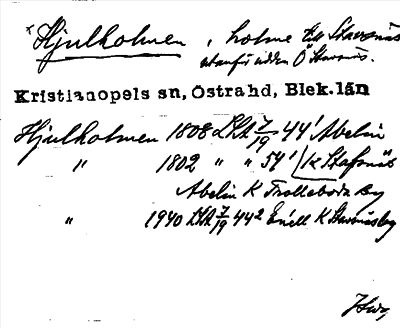 Hjulholmen, holme till Stavsnäs
utanför udden Ö Stavsnäs.
Kristianopels sn, Östrahd, Blek.län
Hjulholmen 1808 LSA 7/19 44¹ Abelin
" 1802 " " 54¹ / K Stafsnäs
Abelin K Trolleboda By
" 1940 LSA 7/19 44² Enéll K Stavsnäs by